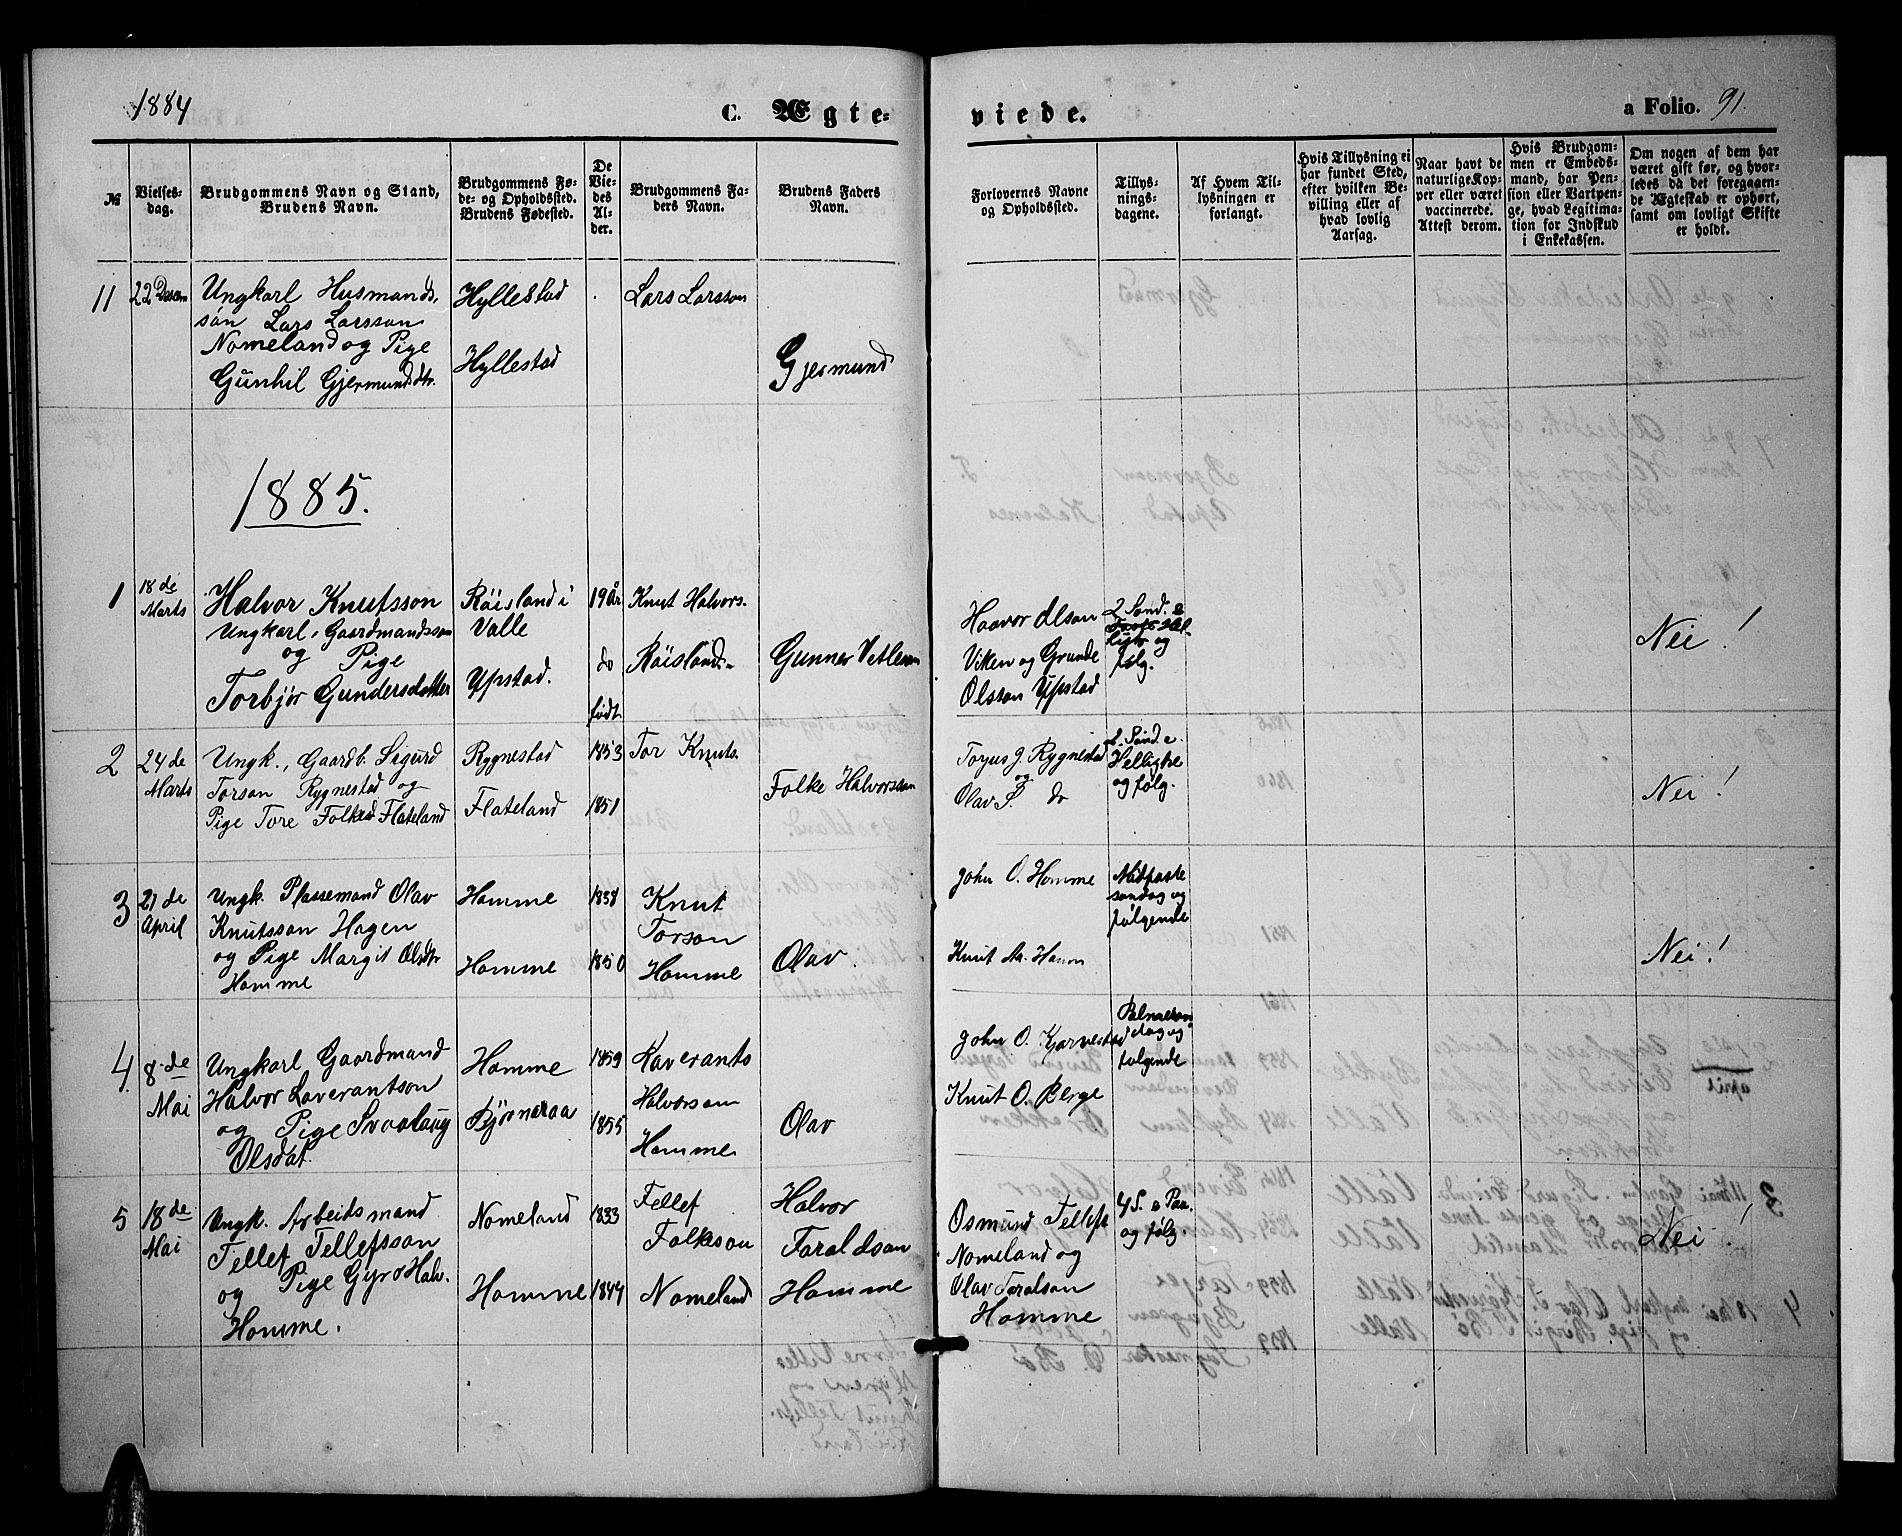 1884
C. Ægte-
viede.
a Folio. 91.
№
Vielses-
dag.
Brudgommens Navn og Stand,
Brudens Navn.
Brudgommens Fø-
de- og Opholdssted.
Brudens Fødested.
De
Vie-
des
Al-
der.
Brudgommens Fa-
ders Navn.
Brudens Faders
Navn.
Forlovernes Navne
og Opholdssted.
Tillys-
nings-
dagene.
Af Hvem Til-
lysningen er
forlangt.
Hvis Tillysning ei
har fundet Sted,
efter hvilken Be-
villing eller af
hvad lovlig
Aarsag.
Naar havt de
naturlige Kop-
per eller været
vaccinerede.
Attest derom.
Hvis Brudgom-
men er Embeds-
mand, har Pen-
sion eller Vartpen-
ge, hvad Legitima-
tion for Indskud
i Enkekassen.
Om nogen af dem har
været gift før, og hvor-
ledes da det foregaaen-
de Ægteskab er ophørt,
samt om lovligt Skifte
er holdt.
11
22 Decem
Ungkarl Husmands,
søn Lars Larsson
Nomeland og Pige
Gunhil Gjermundsdtr.
Hyllestad
Hyllestad
Lars Larsson
Gjermund
1885.
1
18de
Marts
Halvor Knutsson
Ungkarl, Gaardmandsson
og Pige
Torbjør Gundersdatter
Røisland i
Valle
Ypstad.
19 År
do
Knut Halvors.
Røisland
Gunner Vetleson
Haavor Olson
Viken og Grunde
Olsson Ypstad
2 Sønd. e
og
følg.
Nei!
2
24de
Marts
Ungk., Gaardb. Sigurd
Torson Rygnestad og
Pige Tore Folkesd Flateland
Rygnestad
Flateland
født
1853
1851
Tor Knuts.
Folke Halvorsson
Torjus J. Rygnestad
og
Olav S. do
2. Sønd. e.
Helligtre
og følg.
Nei!
3
21de
April
Ungk. Plassemand Olav
Knutsson Hagen
og Pige Margit Olsdtr
Homme
Homme
Homme
1838
1850
Knut
Torson
Homme
Olav
John O. Homme
Knut Aa. Hamr
Midfaste
søndag og
følgende
Nei!
4
8de
Mai
Ungkarl Gaardmand
Halvor Laverantson
og Pige Svaalaug
Olsdat.
Homme
Bjørnaraa
1859
1855
Laverants
Halvorson
Homme
Olav
John O. Kjørvestad
Knut O. Berge
Palmesøn
dag og
følgende
5
18de
Mai
Ungk. Arbeidsmand
Tellef Tellefsson
og Pige Gyro Halv.
Homme.
Nomeland
Homme
1833
1844
Tellef
Folkeson
Nomeland
Halvor
Taraldson
Homme
Osmund Tellefs
Nomeland og
Olav Taralson
Homme
4 S. e Paa.
og følg.
Nei!